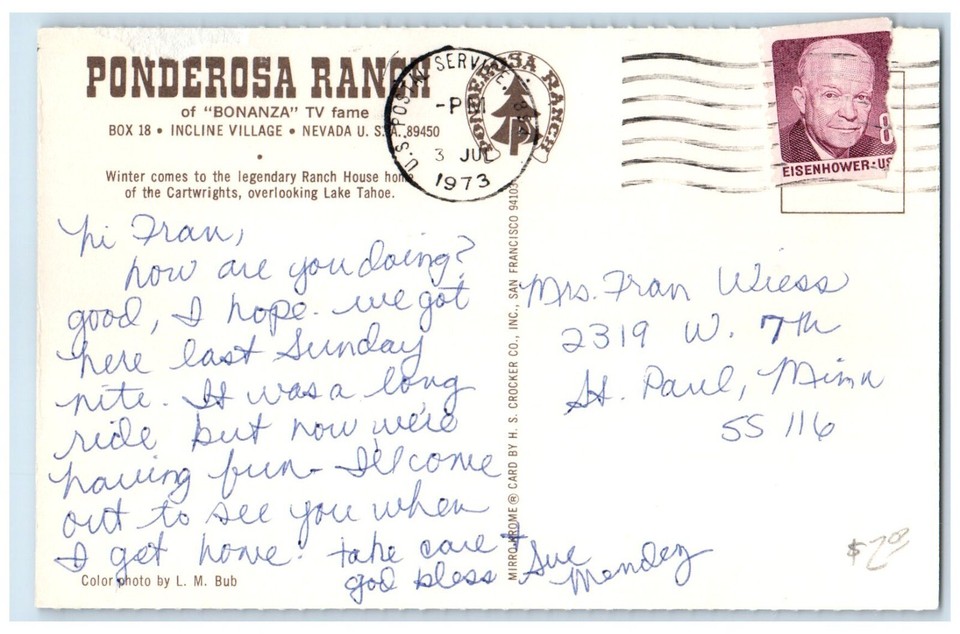 PONDEROSA RANCH
of "BONANZA" TV fame
BOX 18 • INCLINE VILLAGE • NEVADA U. S. A. 89450
Winter comes to the legendary Ranch House home
of the Cartwrights, overlooking Lake Tahoe.
hi Fran,
how are you doing?
good, I hope. we got
here last Sunday
nite. It was a long
ride but now we're
having fun - I'll come
out to see you when
I get home. take care +
god bless Sue
Mendez
Color photo by L. M. Bub
MIRRO-KROME ® CARD BY H. S. CROCKER CO., INC., SAN FRANCISCO 94103
PONDEROSA RANCH
P
U.S. POSTAL SERVICE
PM
3 JUL
1973
8
EISENHOWER·US
Mrs. Fran Wiess
2319 W. 7th
St. Paul, Minn
55116
$7.00